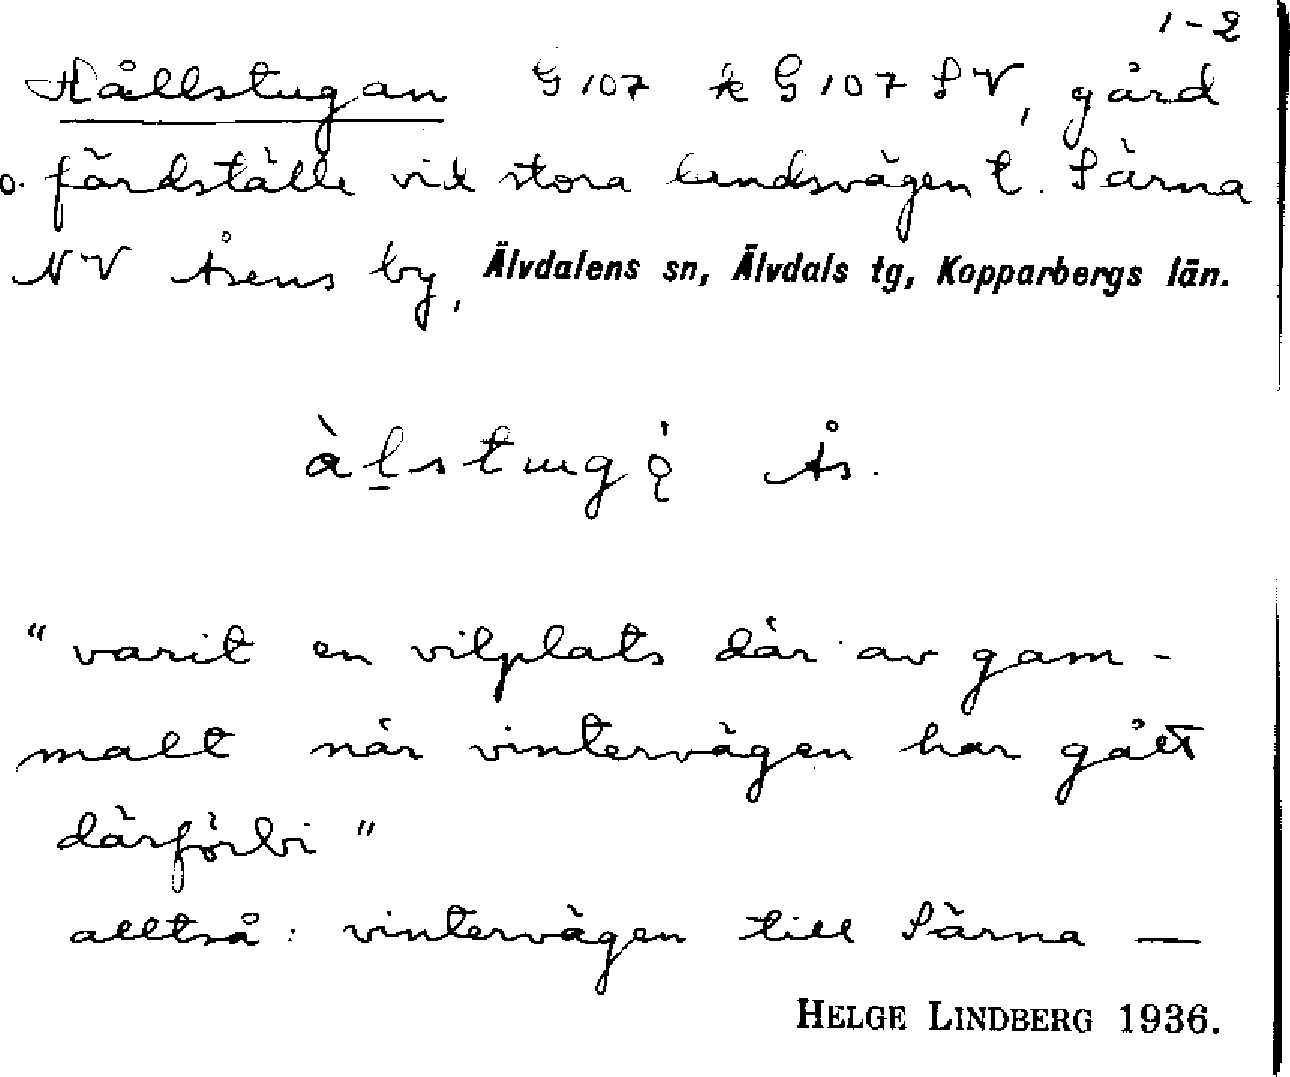 1-2
Hållstugan G 107 k G 107 SV, gård
o. färdställe vid stora landsvägen t. Särna
NV Åsens by, Älvdalens sn, Älvdals tg, Kopparbergs län.
Ås.
"varit en vilplats där av gam-
malt när vintervägen har gått
därförbi"
alltså: vintervägen till Särna —
HELGE LINDBERG 1936.